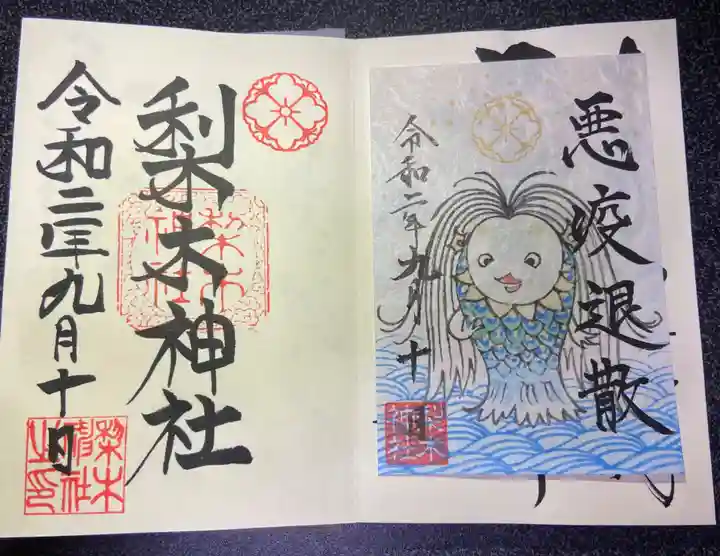 悪疫退散
令和二年九月十日
梨木神社
梨木神社
令和二年九月十日
梨木神社之印